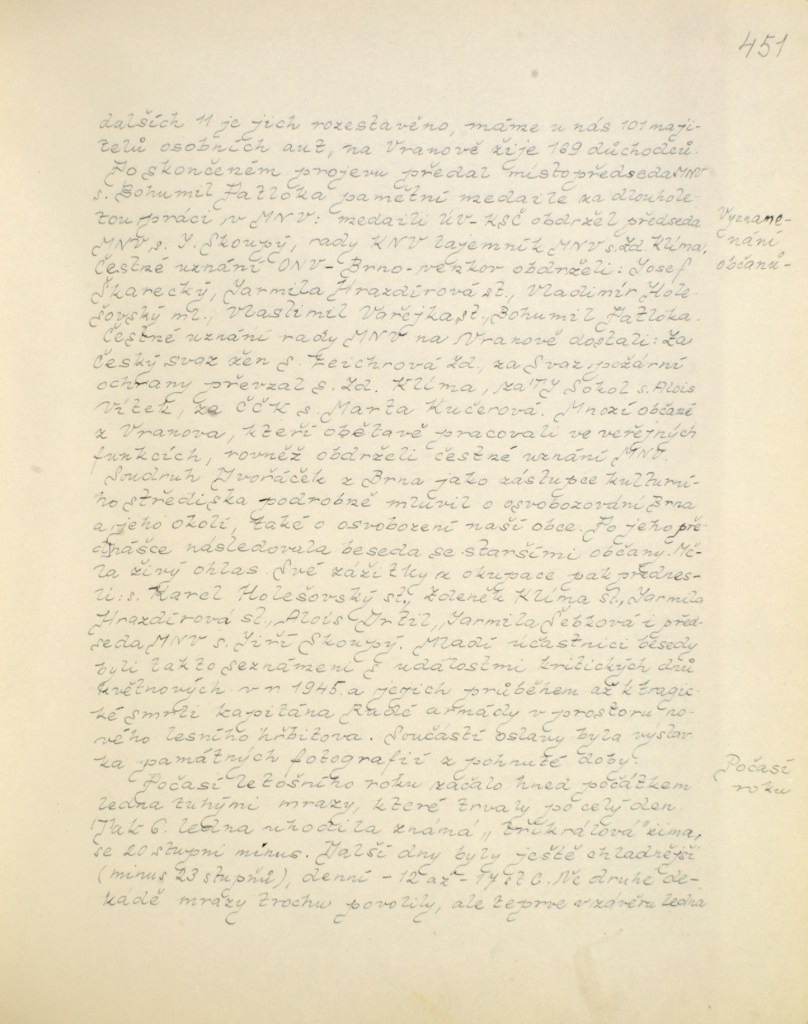 451
dalších 11 je jich rozestavěno, máme u nás 101 maji-
telů osobních aut, na Vranově žije 189 důchodců.
Po skončeném projevu předal místopředseda MNV
s. Bohumil Patloka pamětní medaile za dlouhole-
tou práci v MNV: medaili ÚV-KSČ obdržel předseda
MNV s. J. Skoupý, rady KNV tajemník MNV s. Zd. Klíma.
Čestné uznání ONV-Brno-venkov obdrželi: Josef
Škarecký, Jarmila Hrazdírová st., Vladimír Hole-
šovský ml., Vlastimil Vařejka st., Bohumil Patloka.
Čestné uznání rady MNV na Vranově dostali: Za
Český svaz žen s. Zd., za Svaz požární
ochrany převzal s. Zd. Klíma, za TJ Sokol s. Alois
Vítek, za ČČK s. Marta Kučerová. Mnozí občané
z Vranova, kteří obětavě pracovali ve veřejných
funkcích, rovněž obdrželi čestné uznání MNV.
Soudruh Dvořáček z Brna jako zástupce kulturní-
ho střediska podrobně mluvil o osvobozování Brna
a jeho okolí, také o osvobození naší obce. Po jeho pře-
dnášce následovala beseda se staršími občany. Mě-
la živý ohlas. Své zážitky z okupace pak přednes-
li: s. Karel Holešovský st., Zdeněk Klíma st., Jarmila
Hrazdírová st., Alois Drtil, Jarmila Šebková i před-
seda MNV s. Jiří Skoupý. Mladí účastníci besedy
byli takto seznámeni s událostmi kritických dnů
květnových v r. 1945 a jejich průběhem až k tragic-
ké smrti kapitána Rudé armády v prostoru no-
vého lesního hřbitova. Součástí oslavy byla výstav-
ka památných fotografií z pohnuté doby.
Počasí letošního roku začalo hned počátkem
ledna tuhými mrazy, které trvaly po celý den.
Pak 6. ledna uhodila známá „tříkrálová" zima,
se 20 stupni minus. Další dny byly ještě chladnější
(minus 23 stupňů), denní - 12 až - 17 st C. Ve druhé de-
kádě mrazy trochu povolily, ale teprve v závěru ledna
Vyzname-
nání
občanů-
Počasí
roku